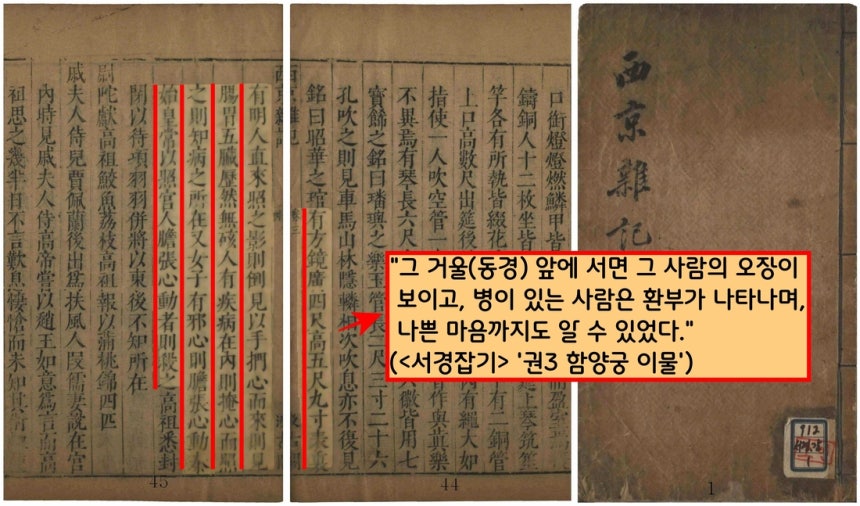 西京雜記
口銜燈燈燃鱗甲皆 而盈室
鑄銅人十二枚坐皆 上琴筑笙
竽各有所執皆綴花 下有二銅管
上口高數尺出筵後 內有繩大如
指使一人吹空管一 皆作與真樂
不異焉有琴長六尺 徽皆用七
寶飾之銘曰璠璵之樂玉管長二尺三寸二十六
孔吹之則見車馬山林隱轔相次吹息亦不復見
銘曰昭華之琯有方鏡廣四尺高五尺九寸表裏
西京雜記
卷三
有明人直來照之影則倒見以手捫心而來則見
腸胃五臟歷然無硋人有疾病在內則掩心而照
之則知病之所在又女子有邪心則膽張心動秦
始皇常以照宮人膽張心動者則殺之高祖悉封
閉以待項羽羽併將以東後不知所在
尉佗獻高祖鮫魚荔枝高祖報以蒲桃錦四匹
戚夫人侍兒賈佩蘭後出爲扶風人段儒妻說在宮
內時見戚夫人侍高帝嘗以趙王如意爲言而高
祖思之幾半日不言歎息悽愴而未知其
"그 거울(동경) 앞에 서면 그 사람의 오장이
보이고, 병이 있는 사람은 환부가 나타나며,
나쁜 마음까지도 알 수 있었다."
(<서경잡기> '권3 함양궁 이물')
912
1
45
44
1